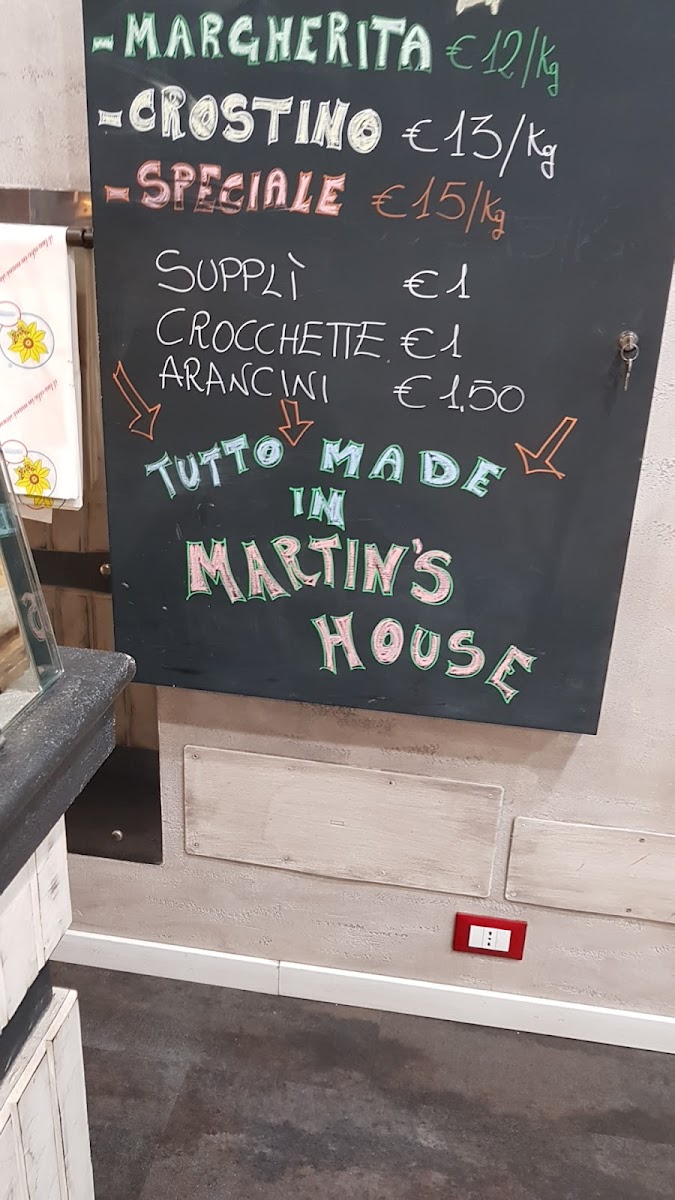 -MARGHERITA €12/Kg
-CROSTINO €13/Kg
-SPECIALE €15/Kg
SUPPLÌ €1
CROCCHETTE €1
ARANCINI €1.50
TUTTO MADE
IN
MARTIN'S
HOUSE